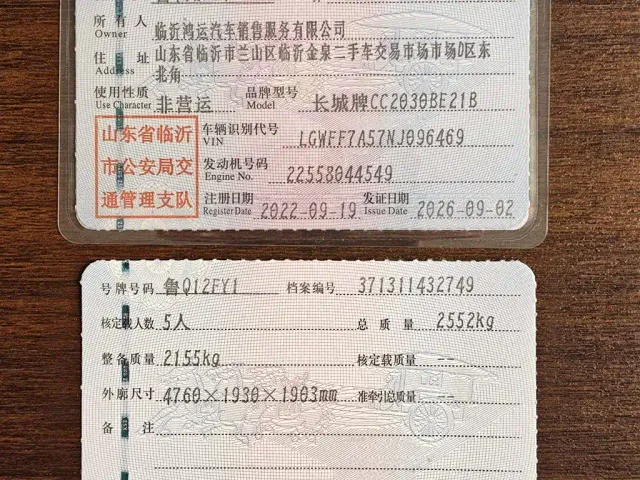 所有人 临沂鸿运汽车销售服务有限公司
Owner
住址 山东省临沂市兰山区临沂金泉二手车交易市场市场D区东
Address 北角
使用性质 非营运 品牌型号 长城牌CC2030BE21B
Use Character Model
山东省临沂
市公安局交
通管理支队
车辆识别代号 LGWFF7A57NJ096469
VIN
发动机号码 22558044549
Engine No.
注册日期 2022-09-19 发证日期 2026-09-02
Register Date Issue Date
号牌号码 鲁Q12FY1 档案编号 371311432749
核定载人数 5人 总质量 2552kg
整备质量 2155kg 核定载质量 --
外廓尺寸 4760×1930×1903mm 准牵引总质量 --
备注